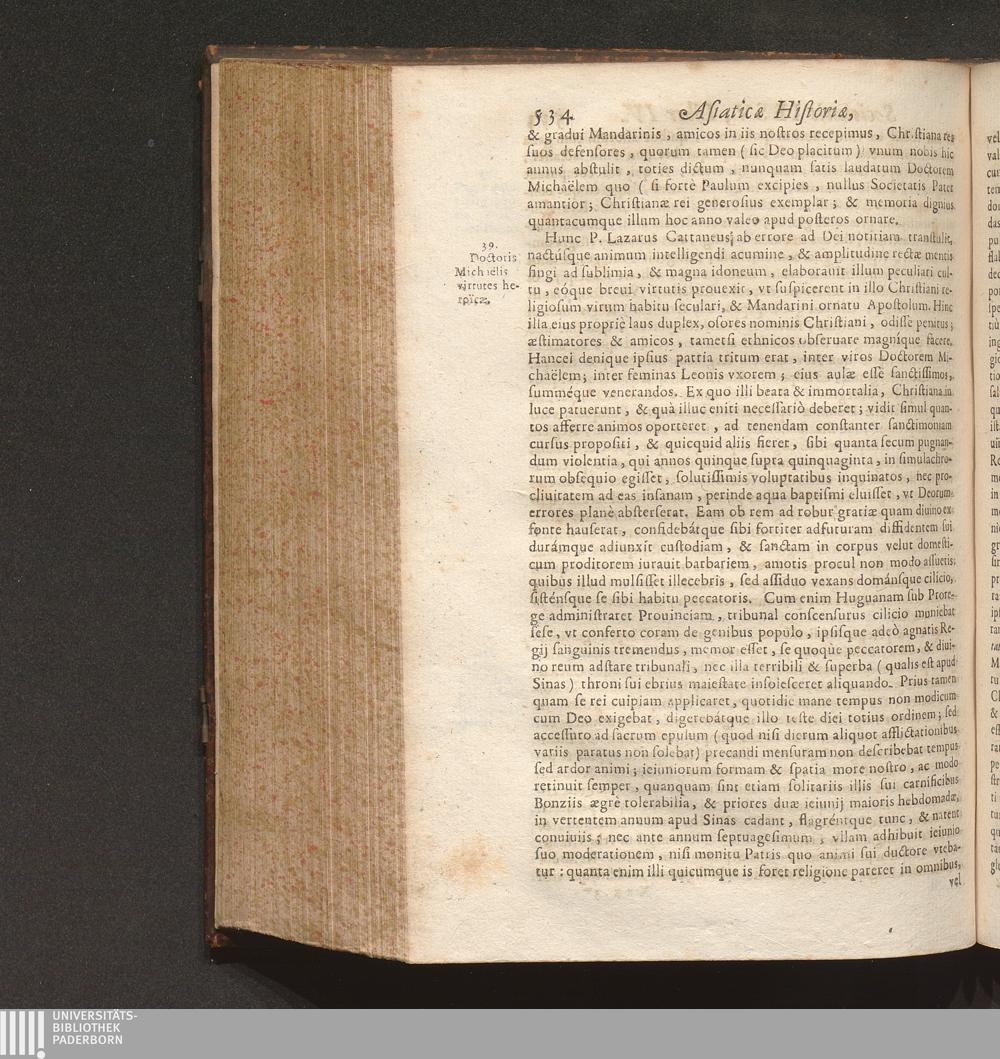 534 Asiaticæ Historiæ,
& gradui Mandarinis, amicos in iis nostros recepimus, Christianæ rei
suos defensores, quorum tamen ( sic Deo placitum ) vnum nobis hic
annus abstulit, toties dictum, nunquam satis laudatum Doctorem
Michaëlem quo ( si fortè Paulum excipies, nullus Societatis Patet
amantior; Christianæ rei generosius exemplar; & memoria dignius
quantacumque illum hoc anno valeo apud posteros ornare.
39.
Doctoris
Michaëlis
virtutes he-
roïcæ.
Hunc P. Lazarus Cattaneus; ab errore ad Dei notitiam transtulit,
nactúsque animum intelligendi acumine, & amplitudine rectæ mentis
singi ad sublimia, & magna idoneum, elaborauit illum peculiari cul-
tu, eóque breui virtutis prouexit, vt suspicerent in illo Christiani re-
ligiosum virum habitu seculari, & Mandarini ornatu Apostolum. Hinc
illa eius propriè laus duplex, osores nominis Christiani, odisse penitus;
æstimatores & amicos, tametsi ethnicos obseruare magníque facere.
Hancei denique ipsius patria tritum erat, inter viros Doctorem Mi-
chaëlem; inter feminas Leonis vxorem; eius aulæ esse sanctissimos,
summéque venerandos. Ex quo illi beata & immortalia, Christiana in
luce patuerunt, & quà illuc eniti necessariò deberet; vidit simul quan-
tos afferre animos oporteret, ad tenendam constanter sanctimoniam
cursus propositi, & quicquid aliis fieret, sibi quanta secum pugnan-
dum violentia, qui annos quinque supra quinquaginta, in simulachro-
rum obsequio egisset, solutissimis voluptatibus inquinatos, nec pro-
cliuitatem ad eas insanam, perinde aqua baptismi eluisset, vt Deorum
errores planè absterserat. Eam ob rem ad robur gratiæ quam diuino ex
fonte hauserat, confidebátque sibi fortiter adfuturam diffidentem sui
durámque adiunxit custodiam, & sanctam in corpus velut domesti-
cum proditorem iurauit barbariem, amotis procul non modo assuetis;
quibus illud mulsisset illecebris, sed assiduo vexans dománsque cilicio,
sisténsque se sibi habitu peccatoris. Cum enim Huguanam sub Prote-
ge administraret Prouinciam, tribunal conscensurus cilicio muniebat
sese, vt conferto coram de genibus populo, ipsisque adeò agnatis Re-
gij sanguinis tremendus, memor esset, se quoque peccatorem, & diui-
no reum adstare tribunali, nec illa terribili & superba ( qualis est apud
Sinas ) throni sui ebrius maiestate insolesceret aliquando. Prius tamen
quam se rei cuipiam applicaret, quotidie mane tempus non modicum
cum Deo exigebat, digerebátque illo teste diei totius ordinem; sed
accessuro ad sacrum epulum ( quod nisi dierum aliquot afflictationibus
variis paratus non solebat) precandi mensuram non describebat tempus
sed ardor animi; ieiuniorum formam & spatia more nostro, ac modo
retinuit semper, quanquam sint etiam solitariis illis sui carnificibus
Bonziis ægrè tolerabilia, & priores duæ ieiunij maioris hebdomadæ,
in vertentem annum apud Sinas cadant, flagréntque tunc, & natent
conuiuiis; nec ante annum septuagesimum, vllam adhibuit ieiunio
suo moderationem, nisi monitu Patris quo animi sui ductore vteba-
tur : quanta enim illi quicumque is foret religione pareret in omnibus,
vel
UNIVERSITÄTS-
BIBLIOTHEK
PADERBORN